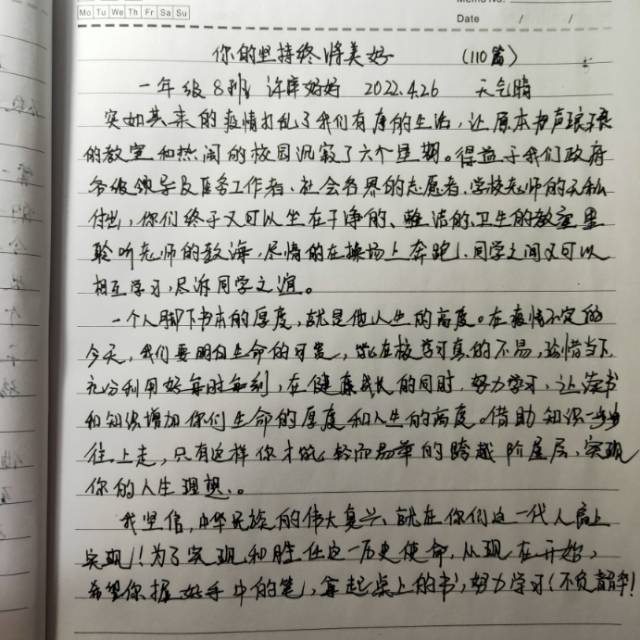 Mo Tu We Th Fr Sa Su
Memo No.
Date / /
你的坚持终将美好 (110篇)
一年级8班 许 好好 2022.4.26 天气晴
突如其来的疫情打乱了我们有序的生活,让原本书声琅琅
的教室和热闹的校园沉寂了六个星期。得益于我们政府
各级领导及医务工作者、社会各界的志愿者、学校老师的无私
付出,你们终于又可以坐在干净的、整洁的、卫生的教室里
聆听老师的教诲,尽情的在操场上奔跑,同学之间又可以
相互学习,尽诉同学之谊。
一个人脚下书本的厚度,就是他人生的高度。在疫情不定的
今天,我们要明白生命的可贵,能在校学习真的不易,珍惜当下,
充分利用好每时每刻,在健康成长的同时,努力学习,让读书
和知识增加你们生命的厚度和人生的高度。借助知识一步步
往上走,只有这样你才能轻而易举的跨越阶层,实现
你的人生理想。
我坚信,中华民族的伟大复兴,就在你们这一代人肩上
实现!!为了实现和胜任这一历史使命,从现在开始,
希望你握好手中的笔,拿起桌上的书,努力学习(不负韶华!